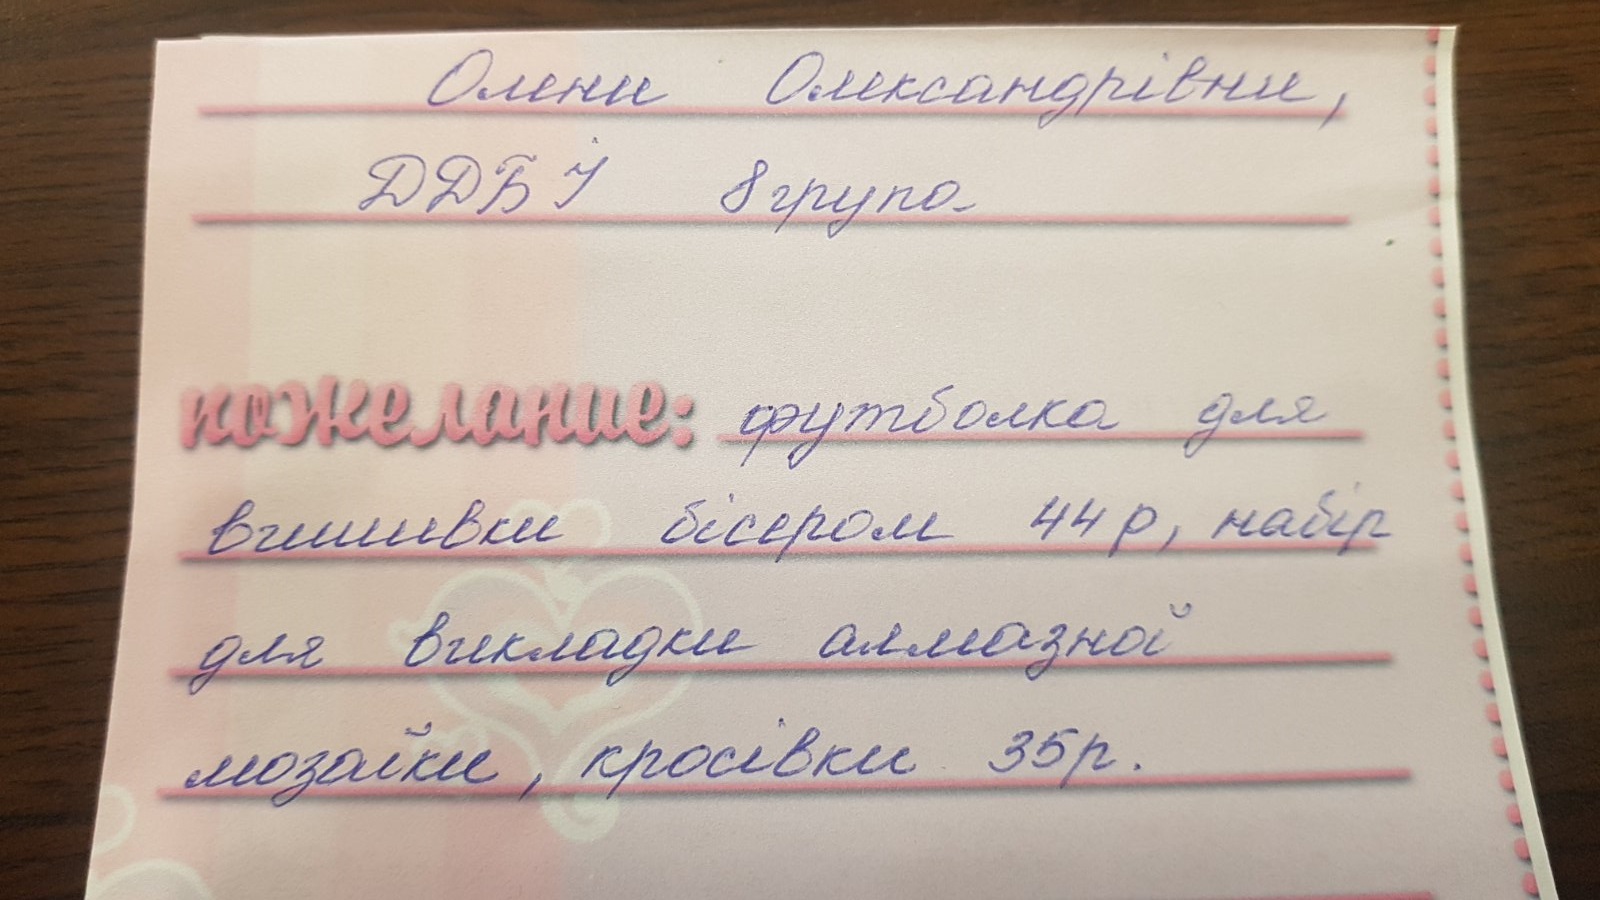 Олени Олександрівни,
ДДБІ 8 група
пожелание: футболка для
вишивки бісером 44р, набір
для викладки алмазной
мозаїки, кросівки 35р.